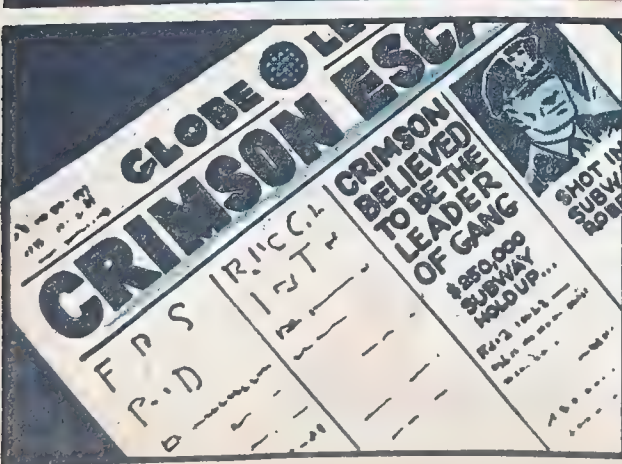 GLOBE LE
CRIMSON ESCA
CRIMSON
BELIEVED
TO BE THE
LEADER
OF GANG
$250,000
SUBWAY
HOLD UP...
SHOT IN
SUBW
ROBB